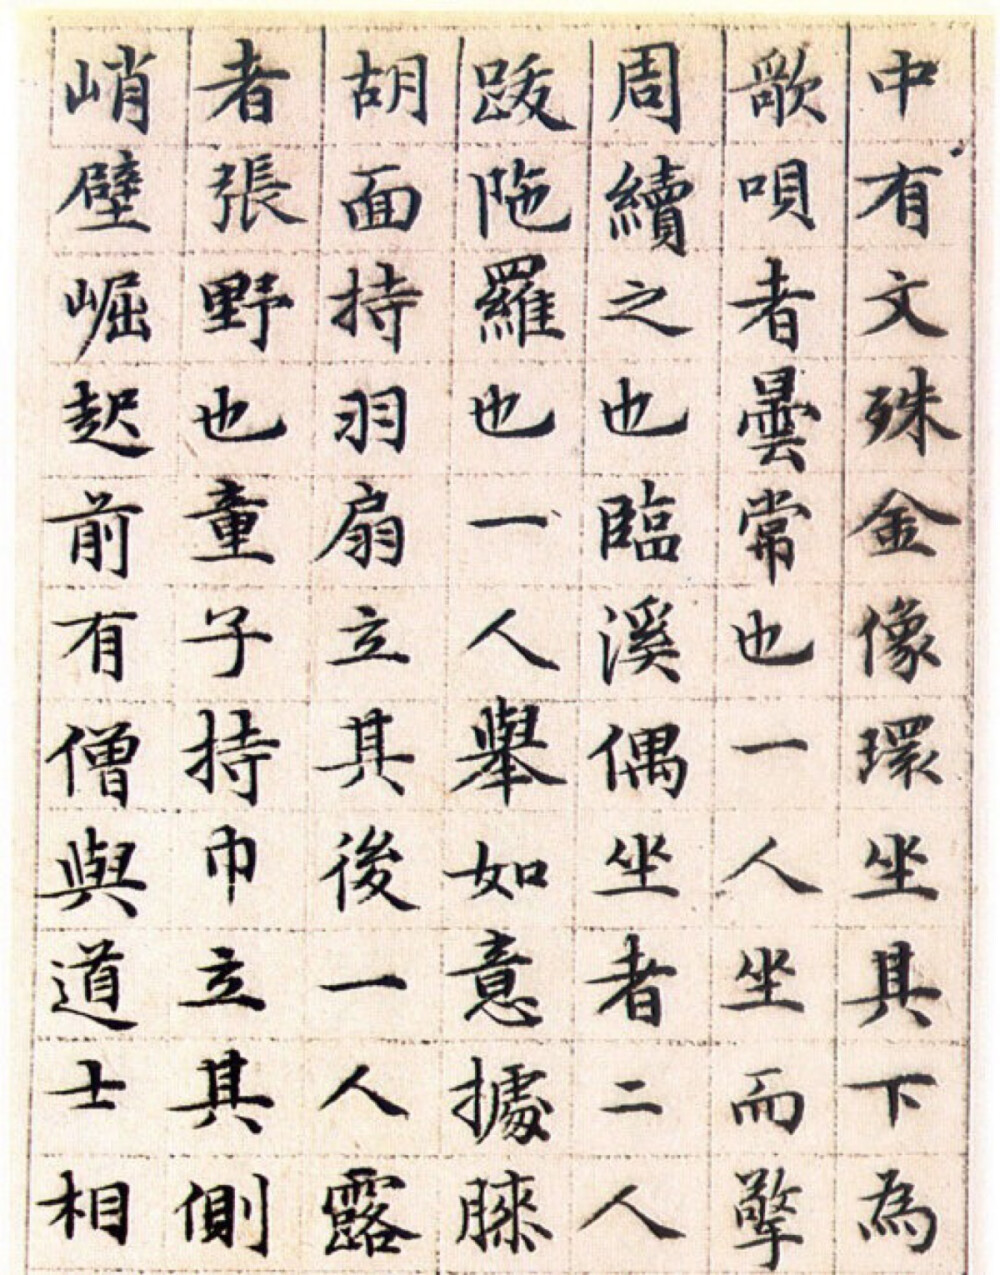 中有文殊金像環坐其下為
歌唄者曇常也一人坐而擎
周續之也臨溪偶坐者二人
跋陁羅也一人舉如意據膝
胡面持羽扇立其後一人露
者張野也童子持巾立其側
峭壁崛起前有僧與道士相